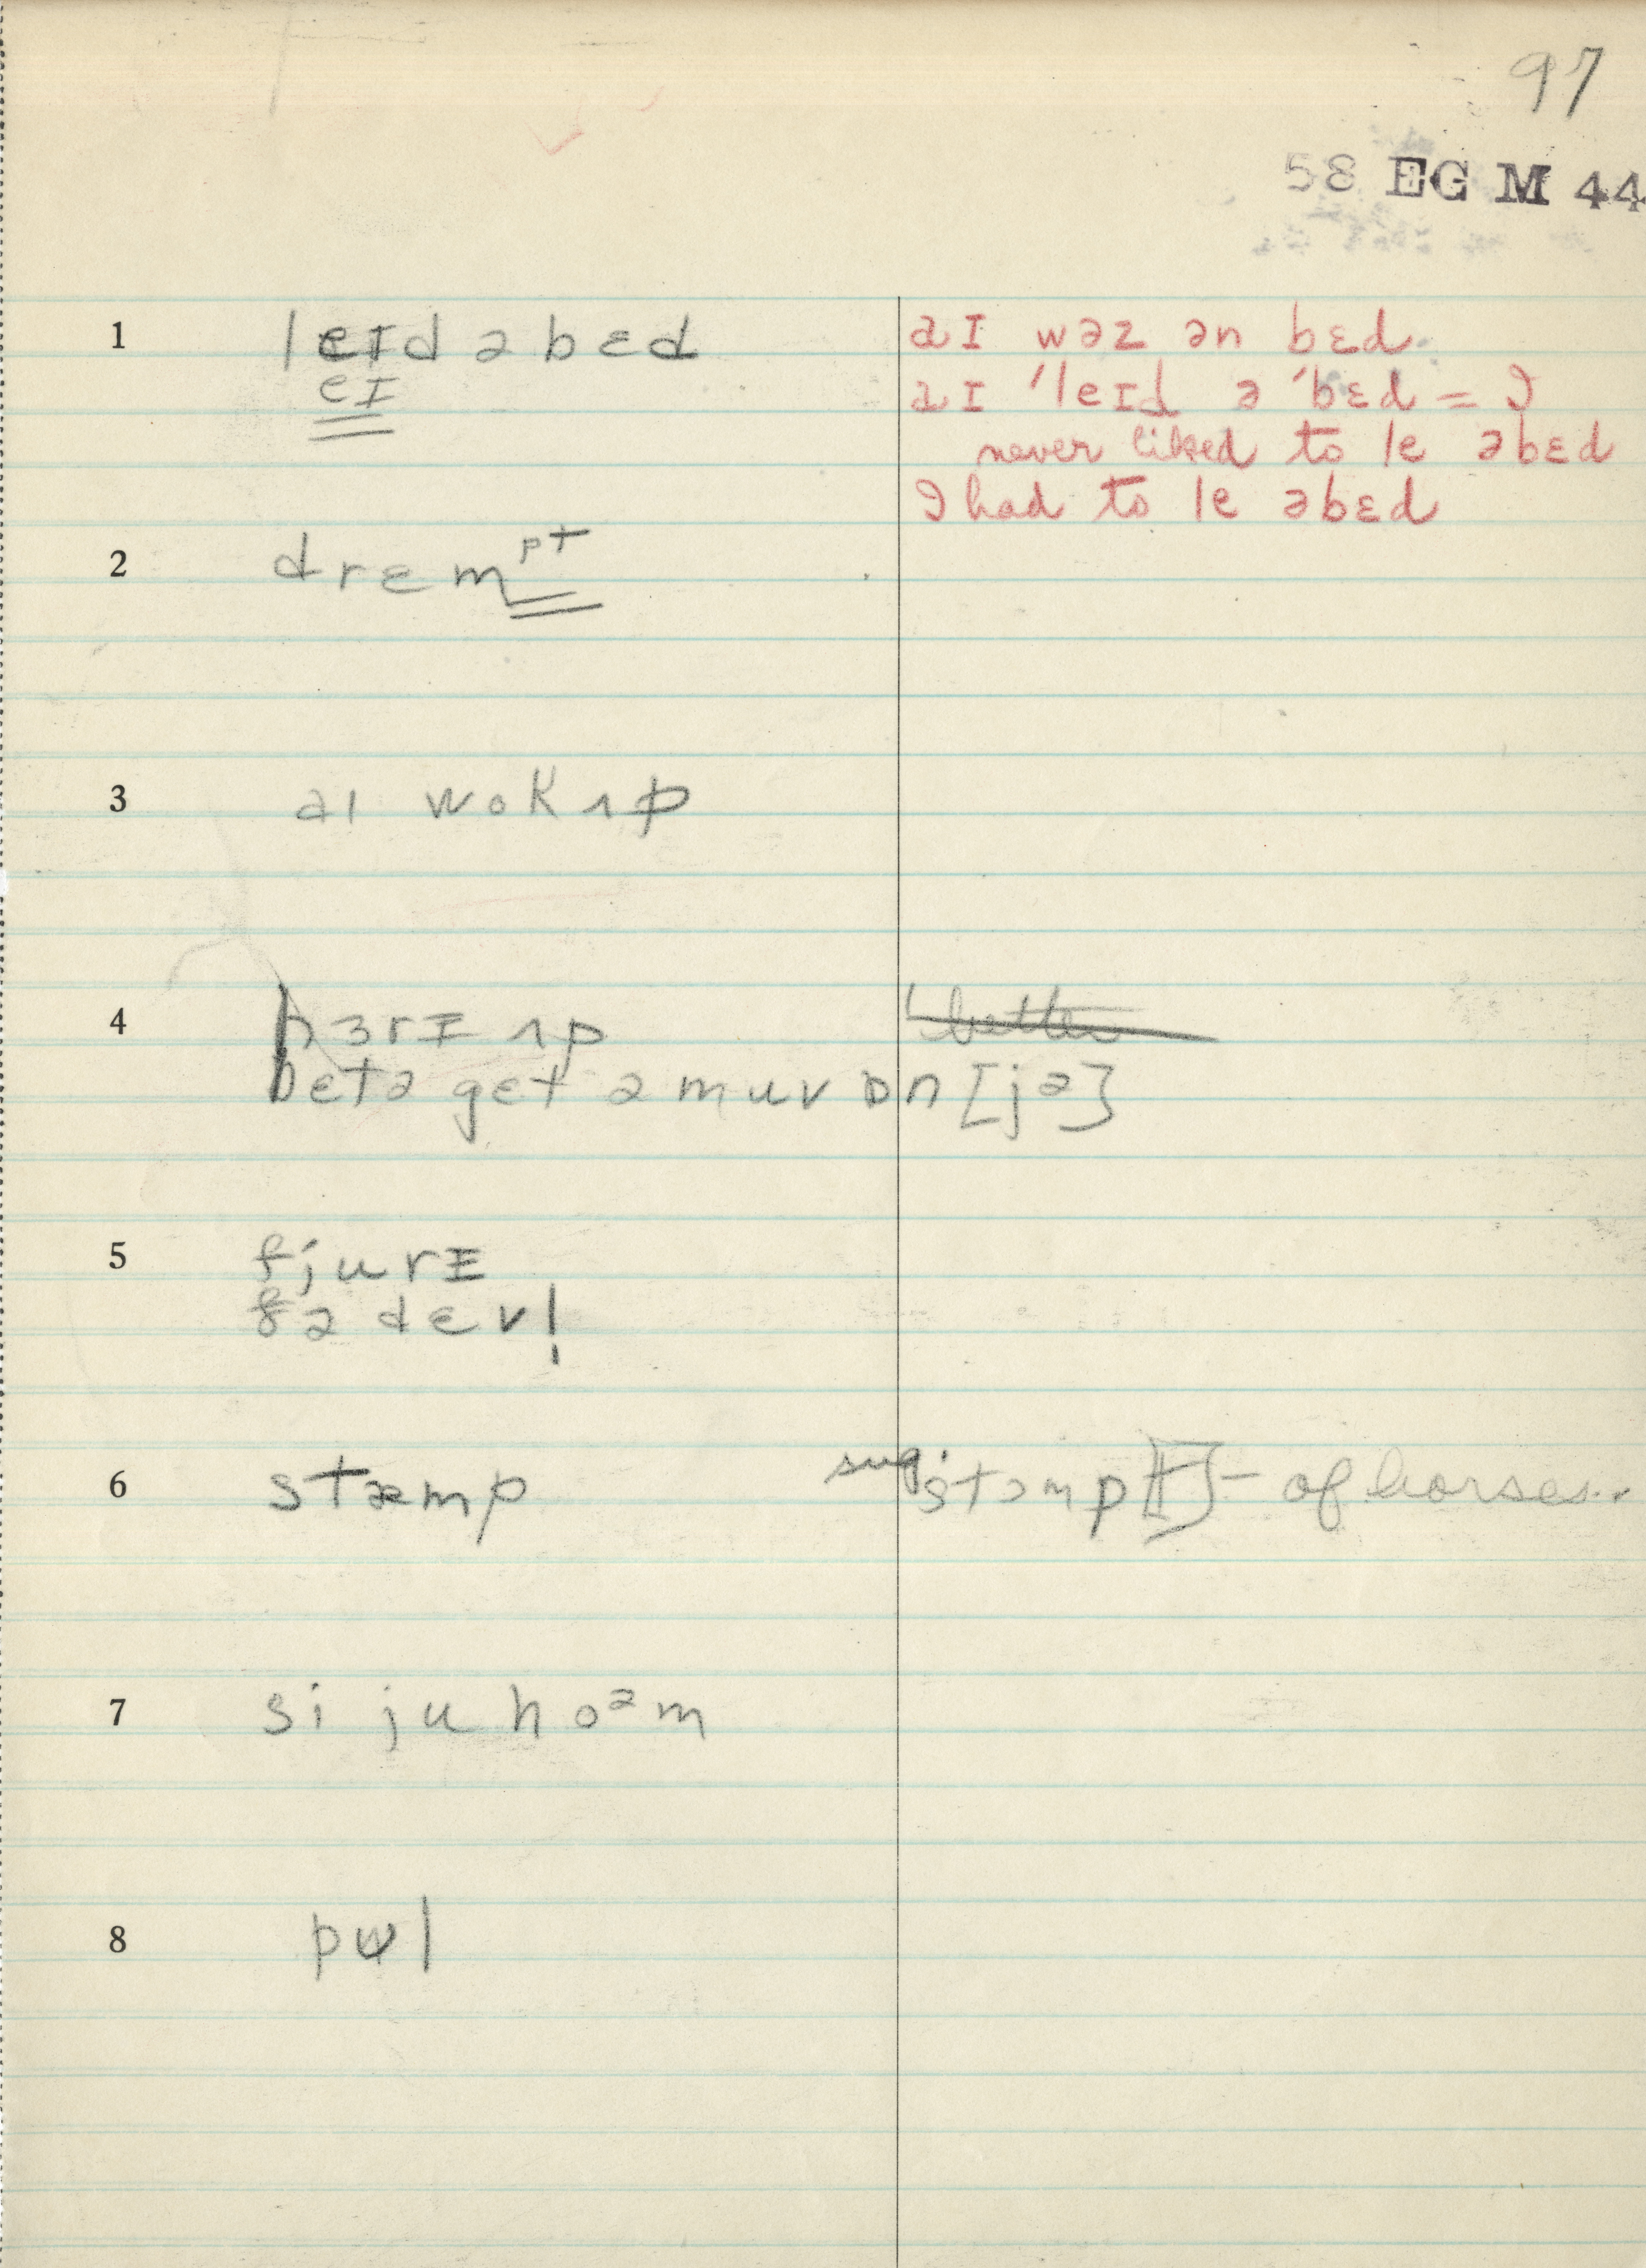 97
58 EG M 44
1 leɪd ə bɛd
eɪ
aɪ wəz ən bɛd.
aɪ 'leɪd ə 'bɛd = I
never liked to le əbɛd
I had to le əbɛd
2 drɛmᵖᵗ
3 aɪ wok ʌp
4 hɜrɪ ʌp
better
betə gɛt ə muv ɒn [jə]
5 fjurɪ
fə dɛv!
6 stæmp sug. stɔmp[t] - of horses..
7 si ju hoᵊm
8 pʊl